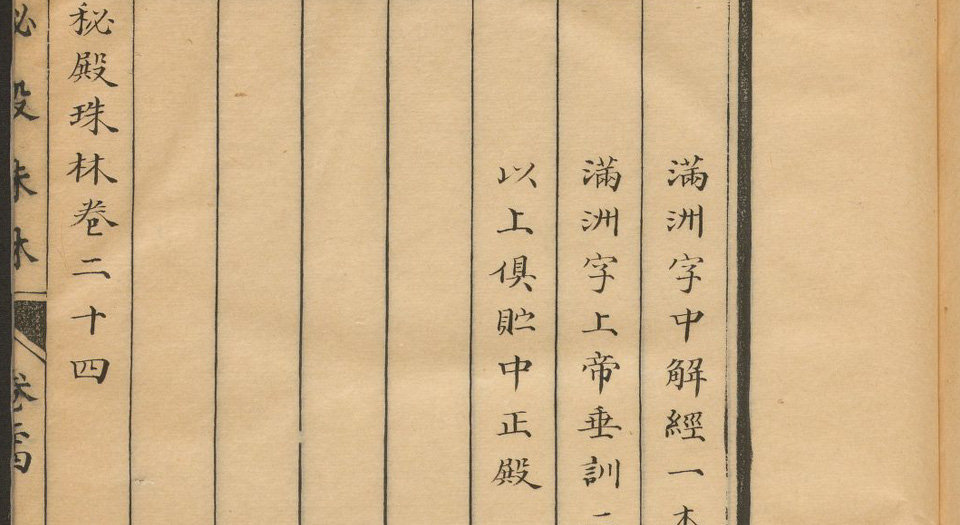 滿洲字中解經一本
滿洲字上帝垂訓一
以上俱貯中正殿
秘殿珠林卷二十四
秘殿珠林 卷二十四